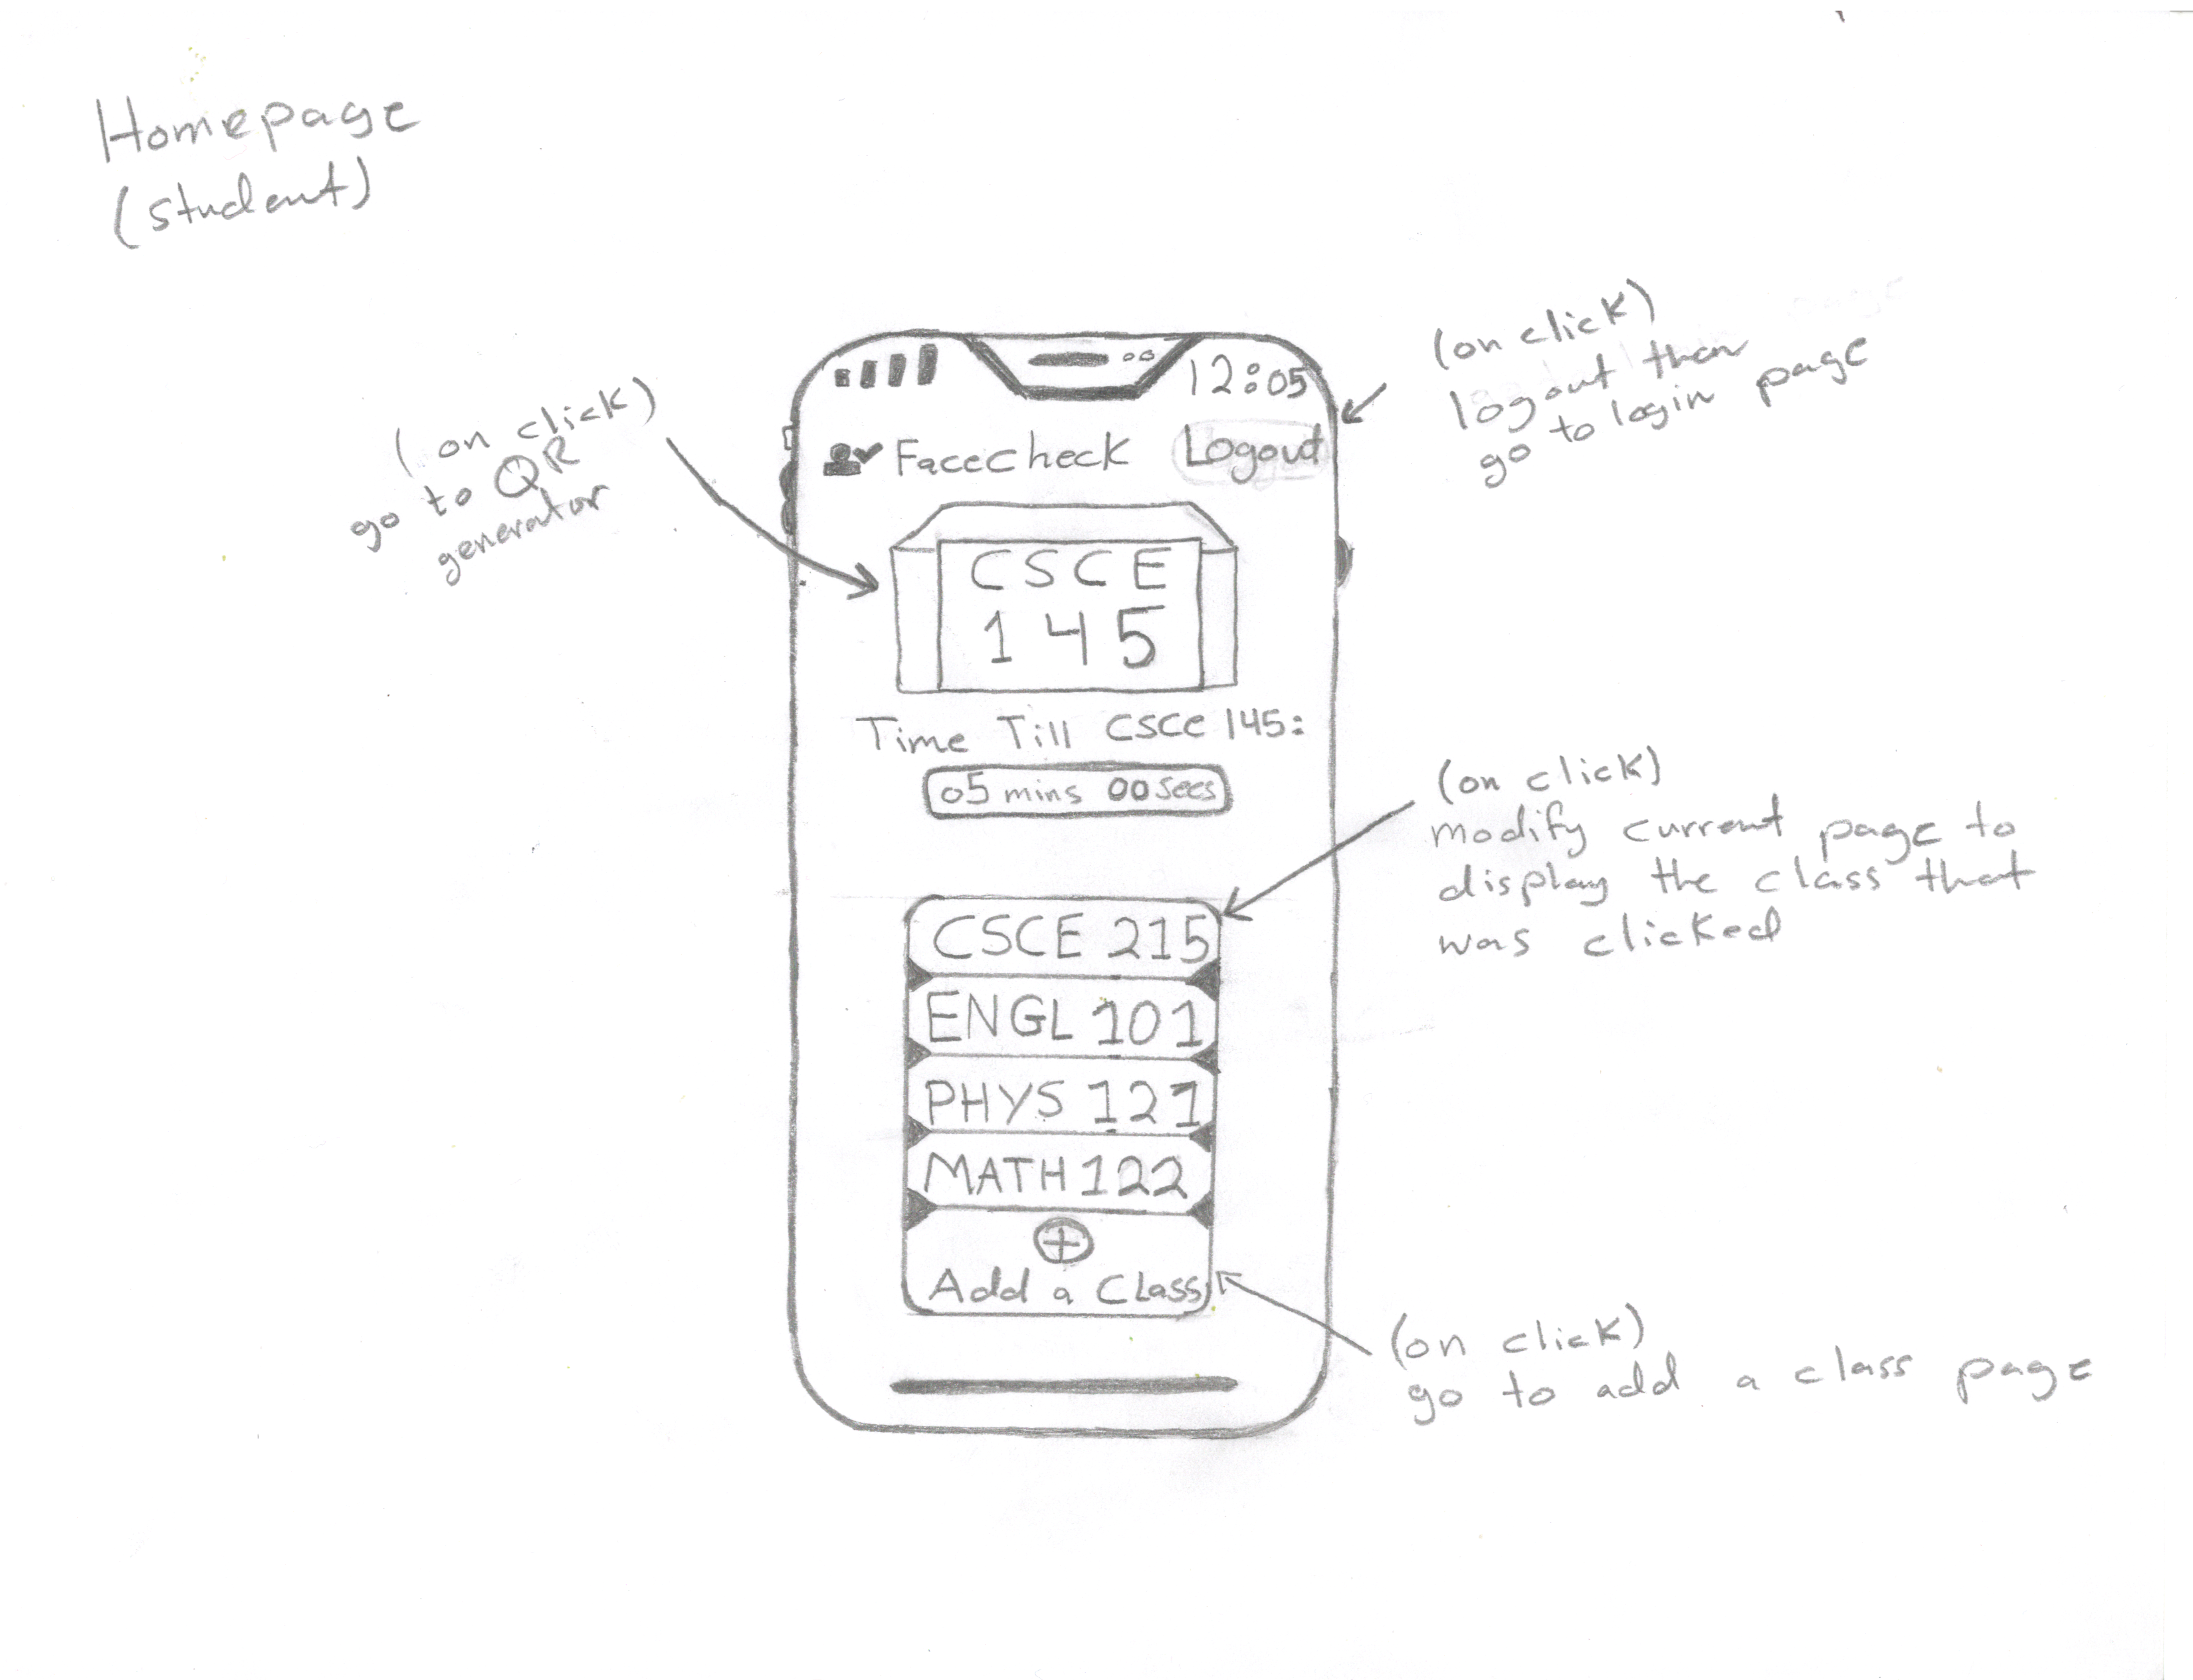 Homepage
(student)
(on click)
go to QR
generator
(on click)
logout then
go to login page
12:05
Facecheck
Logout
CSCE
145
Time Till CSCE 145:
05 mins 00 secs
(on click)
modify current page to
display the class that
was clicked
CSCE 215
ENGL 101
PHYS 121
MATH 122
Add a Class
(on click)
go to add a class page